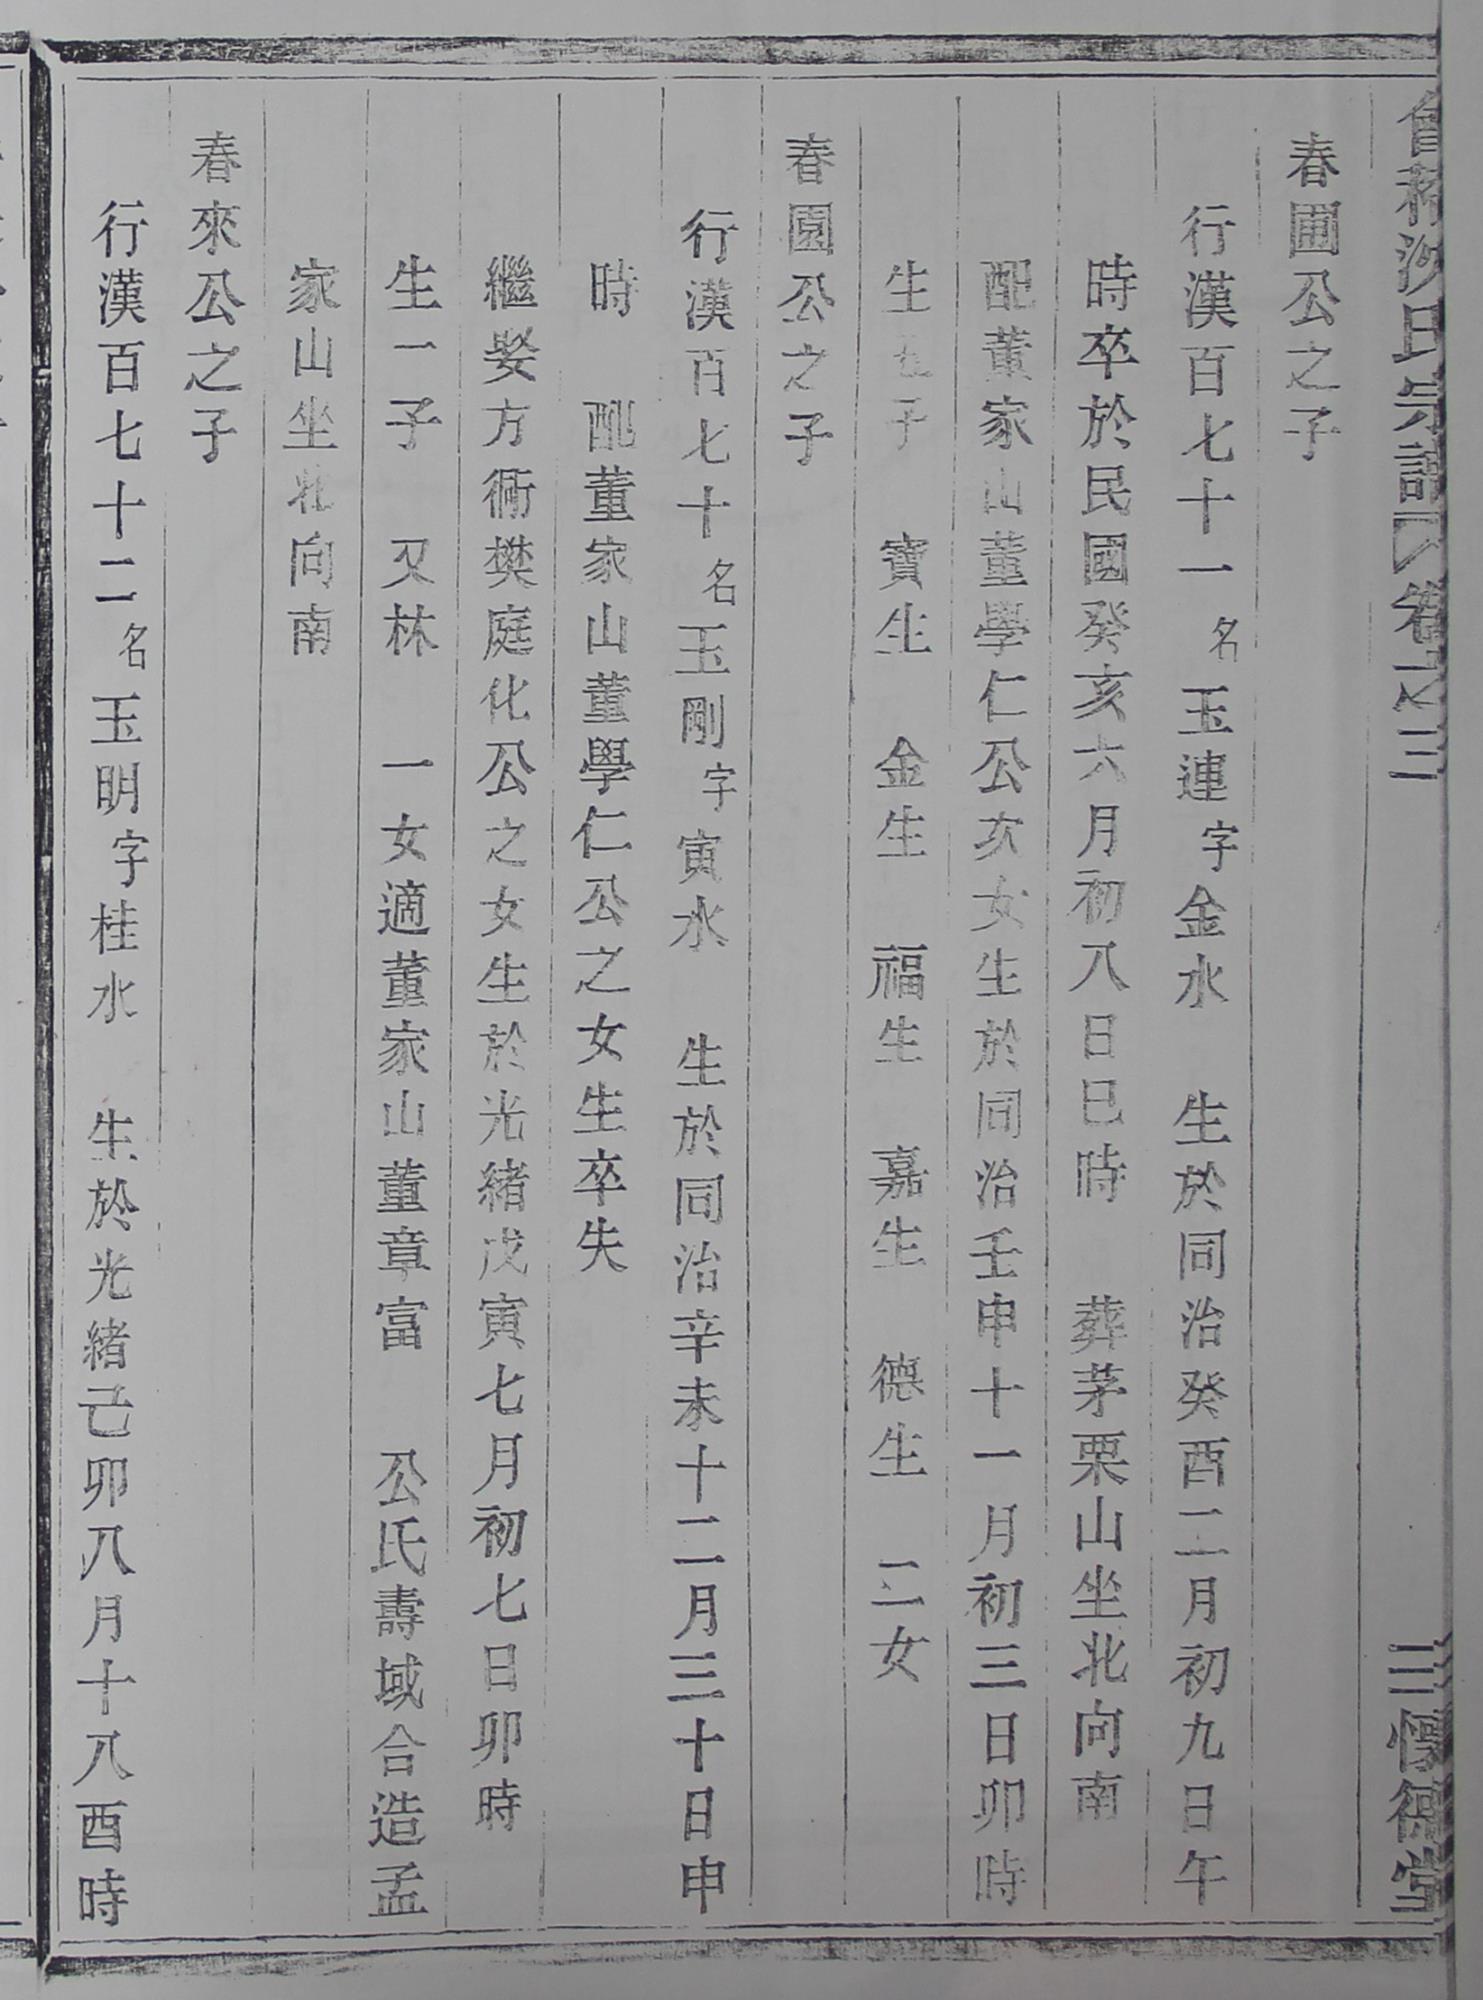 會稽沙氏宗譜 卷之三 三 德堂
春圃公之子
行漢百七十一名玉連字金水 生於同治癸酉二月初九日午
時卒於民國癸亥六月初八日巳時 葬茅栗山坐北向南
配董家山董學仁公次女生於同治壬申十一月初三日卯時
生五子 寶生 金生 福生 嘉生 德生 二女
春園公之子
行漢百七十名玉剛字寅水 生於同治辛未十二月三十日申
時 配董家山董學仁公之女生卒失
繼娶方衕樊庭化公之女生於光緒戊寅七月初七日卯時
生一子 又林 一女適董家山董章富 公氏壽域合造孟
家山坐北向南
春來公之子
行漢百七十二名玉明字桂水 生於光緒己卯八月十八酉時